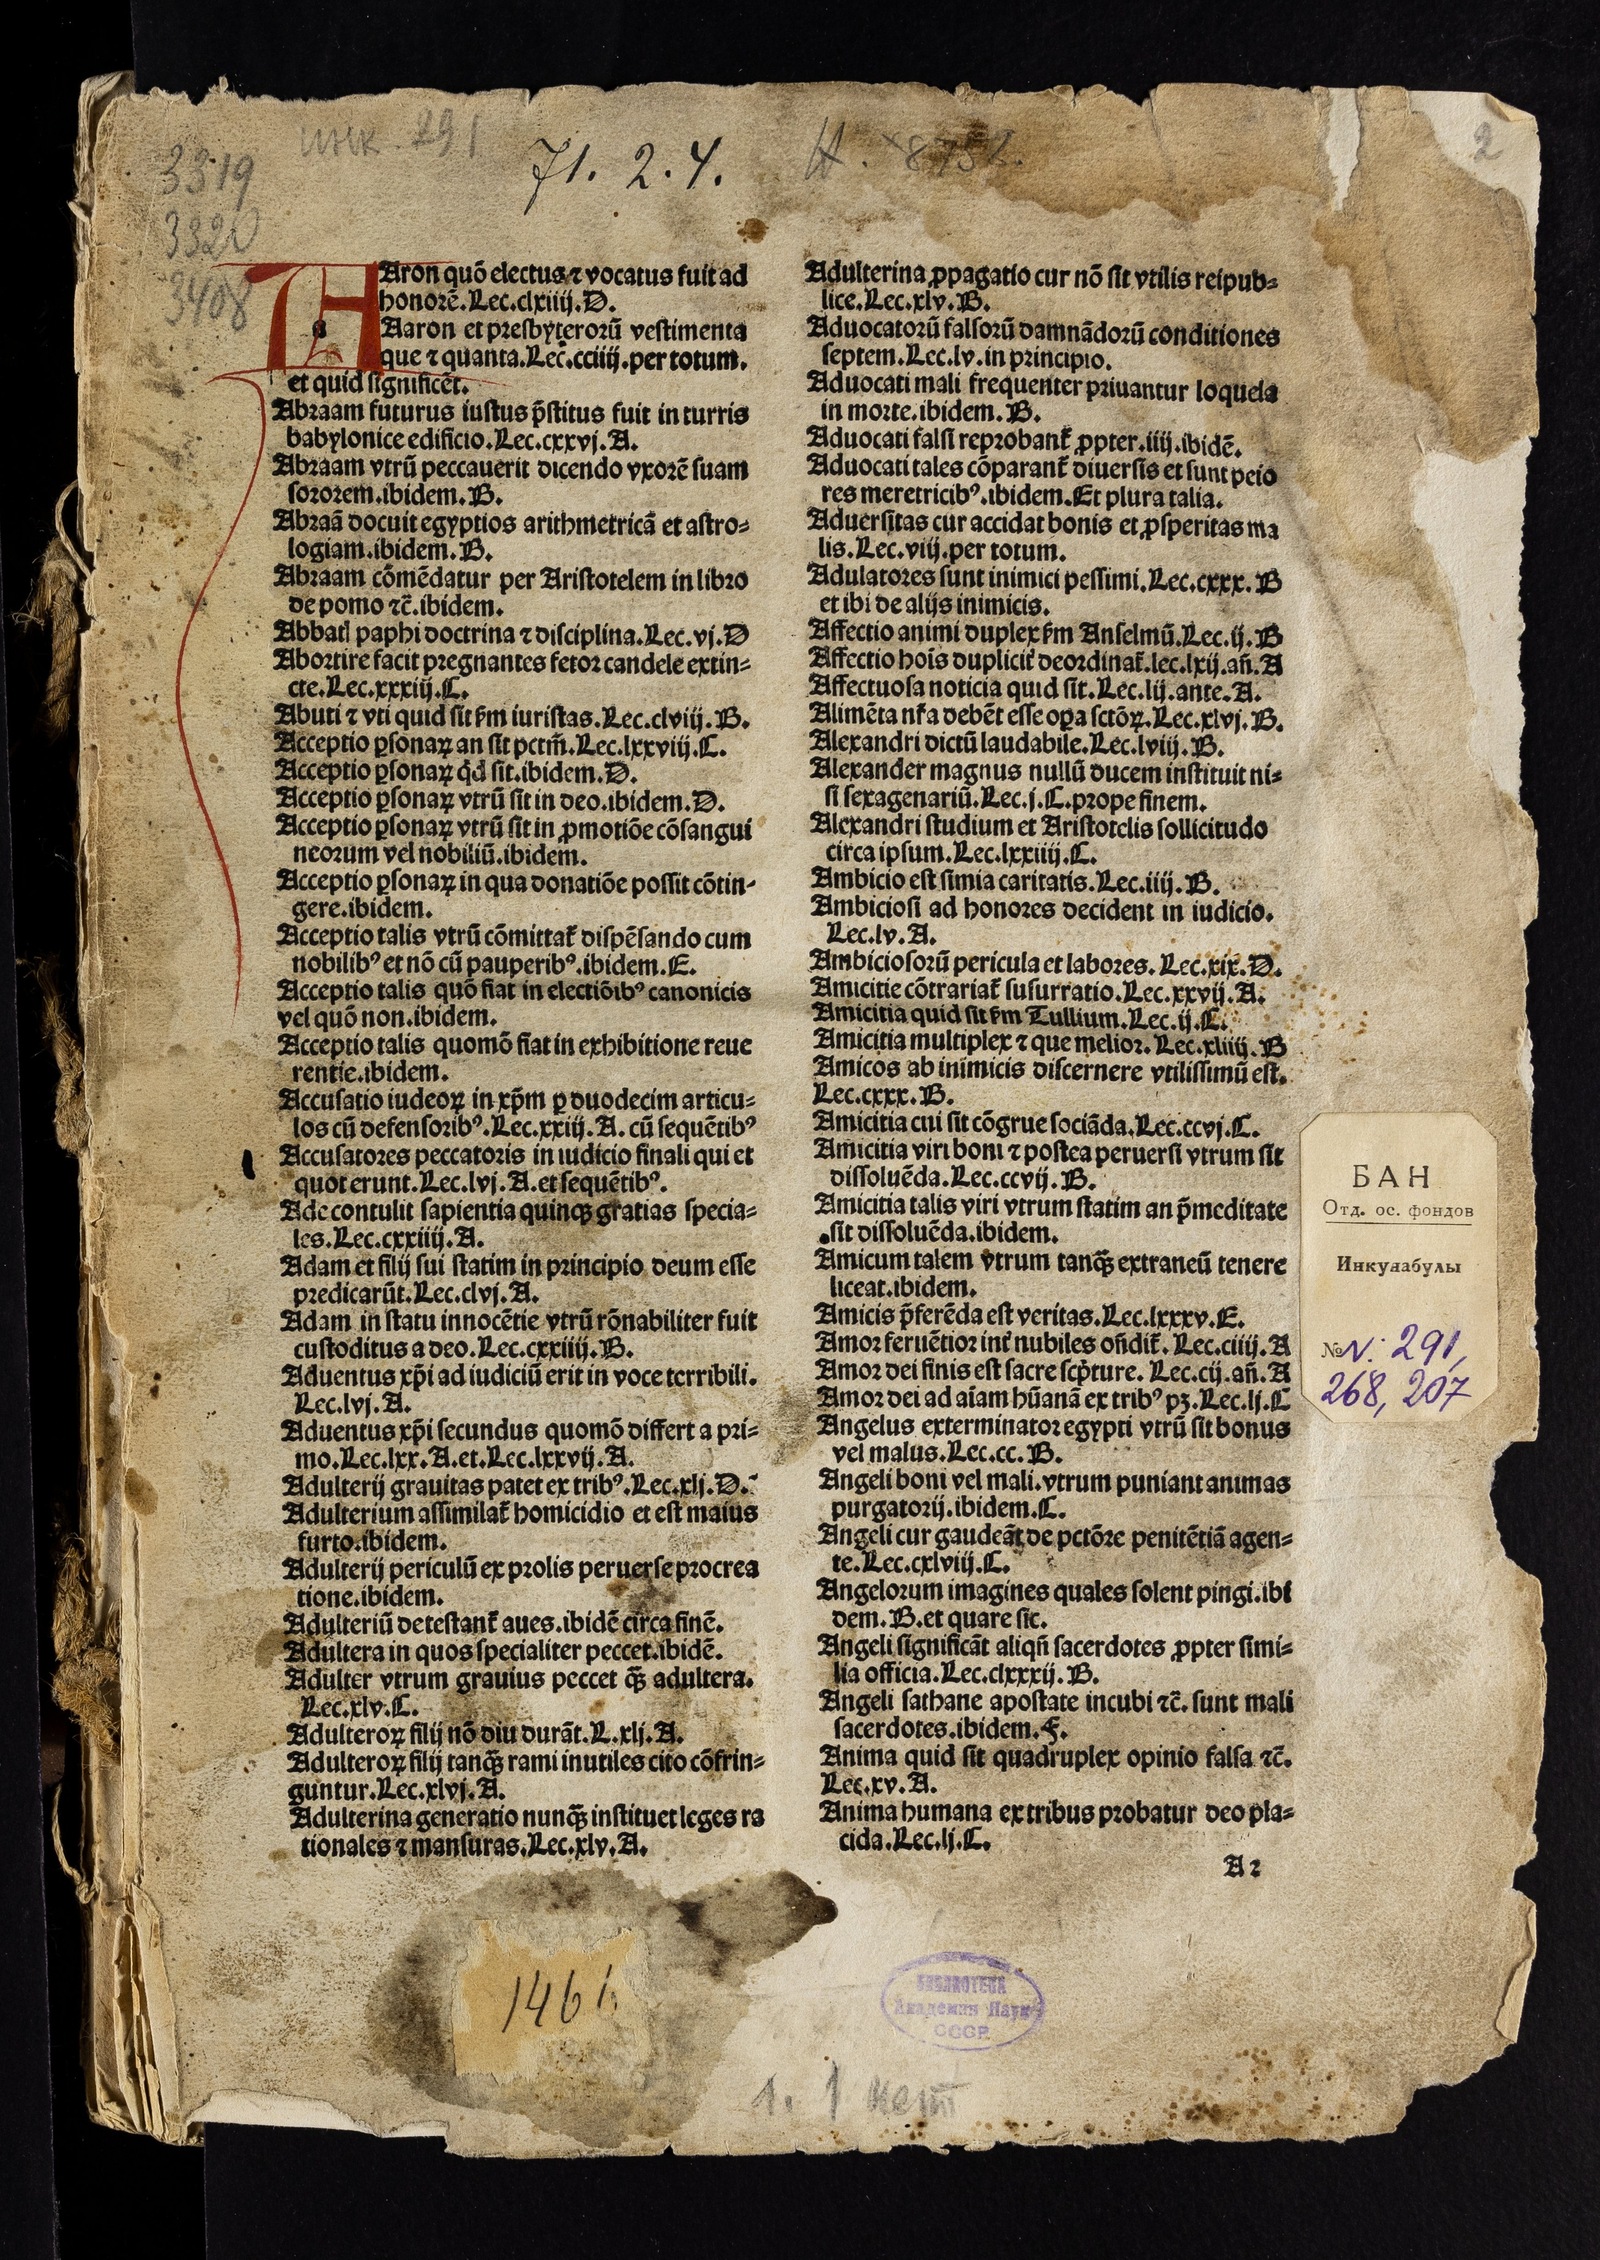 инк. 291
3319
3320
3408
71. 2. 4.
H. *8752.
2
Aaron quō electus ⁊ vocatus fuit ad
honorē. Lec. clxiiij. D.
Aaron et presbyterorū vestimenta
que ⁊ quanta. Lec. cciiij. per totum.
et quid significēt.
Abraam futurus iustus p̄stitus fuit in turris
babylonice edificio. Lec. cxxvj. A.
Abraam vtrū peccauerit dicendo vxorē suam
sororem. ibidem. B.
Abraā docuit egyptios arithmetricā et astro=
logiam. ibidem. B.
Abraam cōmēdatur per Aristotelem in libro
de pomo ⁊c̄. ibidem.
Abbatꝭ paphi doctrina ⁊ disciplina. Lec. vj. D
Abortire facit pregnantes fetor candele extin=
cte. Lec. xxxiij. C.
Abuti ⁊ vti quid sit ẜm iuristas. Lec. clviij. B.
Acceptio ꝑsonaꝝ an sit pctm̄. Lec. lxxviij. C.
Acceptio ꝑsonaꝝ qd̓ sit. ibidem. D.
Acceptio ꝑsonaꝝ vtrū sit in deo. ibidem. D.
Acceptio ꝑsonaꝝ vtrū sit in ꝓmotiōe cōsangui
neorum vel nobiliū. ibidem.
Acceptio ꝑsonaꝝ in qua donatiōe possit cōtin=
gere. ibidem.
Acceptio talis vtrū cōmittat̃ dispēsando cum
nobilibꝰ et nō cū pauperibꝰ. ibidem. E.
Acceptio talis quō fiat in electiōibꝰ canonicis
vel quō non. ibidem.
Acceptio talis quomō fiat in exhibitione reue
rentie. ibidem.
Accusatio iudeoꝝ in xp̄m ꝑ duodecim articu=
los cū defensoribꝰ. Lec. xxiij. A. cū sequētibꝰ
Accusatores peccatoris in iudicio finali qui et
quot erunt. Lec. lvj. A. et sequētibꝰ.
Ade contulit sapientia quinqꝫ gratias specia=
les. Lec. cxxiiij. A.
Adam et filij sui statim in principio deum esse
predicarūt. Lec. clvj. A.
Adam in statu innocētie vtrū rōnabiliter fuit
custoditus a deo. Lec. cxxiiij. B.
Aduentus xp̄i ad iudiciū erit in voce terribili.
Lec. lvj. A.
Aduentus xp̄i secundus quomō differt a pri=
mo. Lec. lxx. A. et. Lec. lxxvij. A.
Adulterij grauitas patet ex tribꝰ. Lec. xlj. D.
Adulterium assimilat̃ homicidio et est maius
furto. ibidem.
Adulterij periculū ex prolis peruerse procrea
tione. ibidem.
Adulteriū detestant̃ aues. ibidē circa finē.
Adultera in quos specialiter peccet. ibidē.
Adulter vtrum grauius peccet qꝫ̄ adultera.
Lec. xlv. C.
Adulteroꝝ filij nō diu durāt. L. xlj. A.
Adulteroꝝ filij tanqꝫ̄ rami inutiles cito cōfrin=
guntur. Lec. xlvj. A.
Adulterina generatio nunqꝫ̄ instituet leges ra
tionales ⁊ mansuras. Lec. xlv. A.
Adulterina ꝓpagatio cur nō sit vtilis reipub=
lice. Lec. xlv. B.
Aduocatorū falsorū damnādorū conditiones
septem. Lec. lv. in principio.
Aduocati mali frequenter priuantur loquela
in morte. ibidem. B.
Aduocati falsi reprobant̃ ꝓpter. iiij. ibidē.
Aduocati tales cōparant̃ diuersis et sunt peio
res meretricibꝰ. ibidem. Et plura talia.
Aduersitas cur accidat bonis et ꝓsperitas ma
lis. Lec. viij. per totum.
Adulatores sunt inimici pessimi. Lec. cxxx. B
et ibi de alijs inimicis.
Affectio animi duplex ẜm Anselmū. Lec. ij. B
Affectio hoīs duplicit̃ deordinat̃. lec. lxij. añ. A
Affectuosa noticia quid sit. Lec. lij. ante. A.
Alimēta nr̃a debēt esse oꝑa sctōꝝ. Lec. xlvj. B.
Alexandri dictū laudabile. Lec. lviij. B.
Alexander magnus nullū ducem instituit ni=
si sexagenariū. Lec. j. C. prope finem.
Alexandri studium et Aristotelis sollicitudo
circa ipsum. Lec. lxxiiij. C.
Ambicio est simia caritatis. Lec. iiij. B.
Ambiciosi ad honores decident in iudicio.
Lec. lv. A.
Ambiciosorū pericula et labores. Lec. xix. D.
Amicitie cōtrariat̃ susurratio. Lec. xxvij. A.
Amicitia quid sit ẜm Tullium. Lec. ij. C.
Amicitia multiplex ⁊ que melior. Lec. xliiij. B
Amicos ab inimicis discernere vtilissimū est.
Lec. cxxx. B.
Amicitia cui sit cōgrue sociāda. Lec. ccvj. C.
Amicitia viri boni ⁊ postea peruersi vtrum sit
dissoluēda. Lec. ccvij. B.
Amicitia talis viri vtrum statim an p̄meditate
sit dissoluēda. ibidem.
Amicum talem vtrum tanqꝫ̄ extraneū tenere
liceat. ibidem.
Amicis p̄ferēda est veritas. Lec. lxxxv. E.
Amor feruētior int̃ nubiles oñdit̃. Lec. ciiij. A
Amor dei finis est sacre scp̄ture. Lec. cij. añ. A
Amor dei ad aīam hūanā ex tribꝰ pꝫ. Lec. lj. C
Angelus exterminator egypti vtrū sit bonus
vel malus. Lec. cc. B.
Angeli boni vel mali. vtrum puniant animas
purgatorij. ibidem. C.
Angeli cur gaudeāt de pctōre penitētiā agen=
te. Lec. cxlviij. C.
Angelorum imagines quales solent pingi. ibi
dem. B. et quare sic.
Angeli significāt aliqñ sacerdotes ꝓpter simi=
lia officia. Lec. clxxxij. B.
Angeli sathane apostate incubi ⁊c̄. sunt mali
sacerdotes. ibidem. F.
Anima quid sit quadruplex opinio falsa ⁊c̄.
Lec. xv. A.
Anima humana ex tribus probatur deo pla=
cida. Lec. lj. C.
A 2
БАН
Отд. ос. фондов
Инкунабулы
№ N: 291,
268, 207
1461
БИБЛИОТЕКА
Академии Наук
СССР